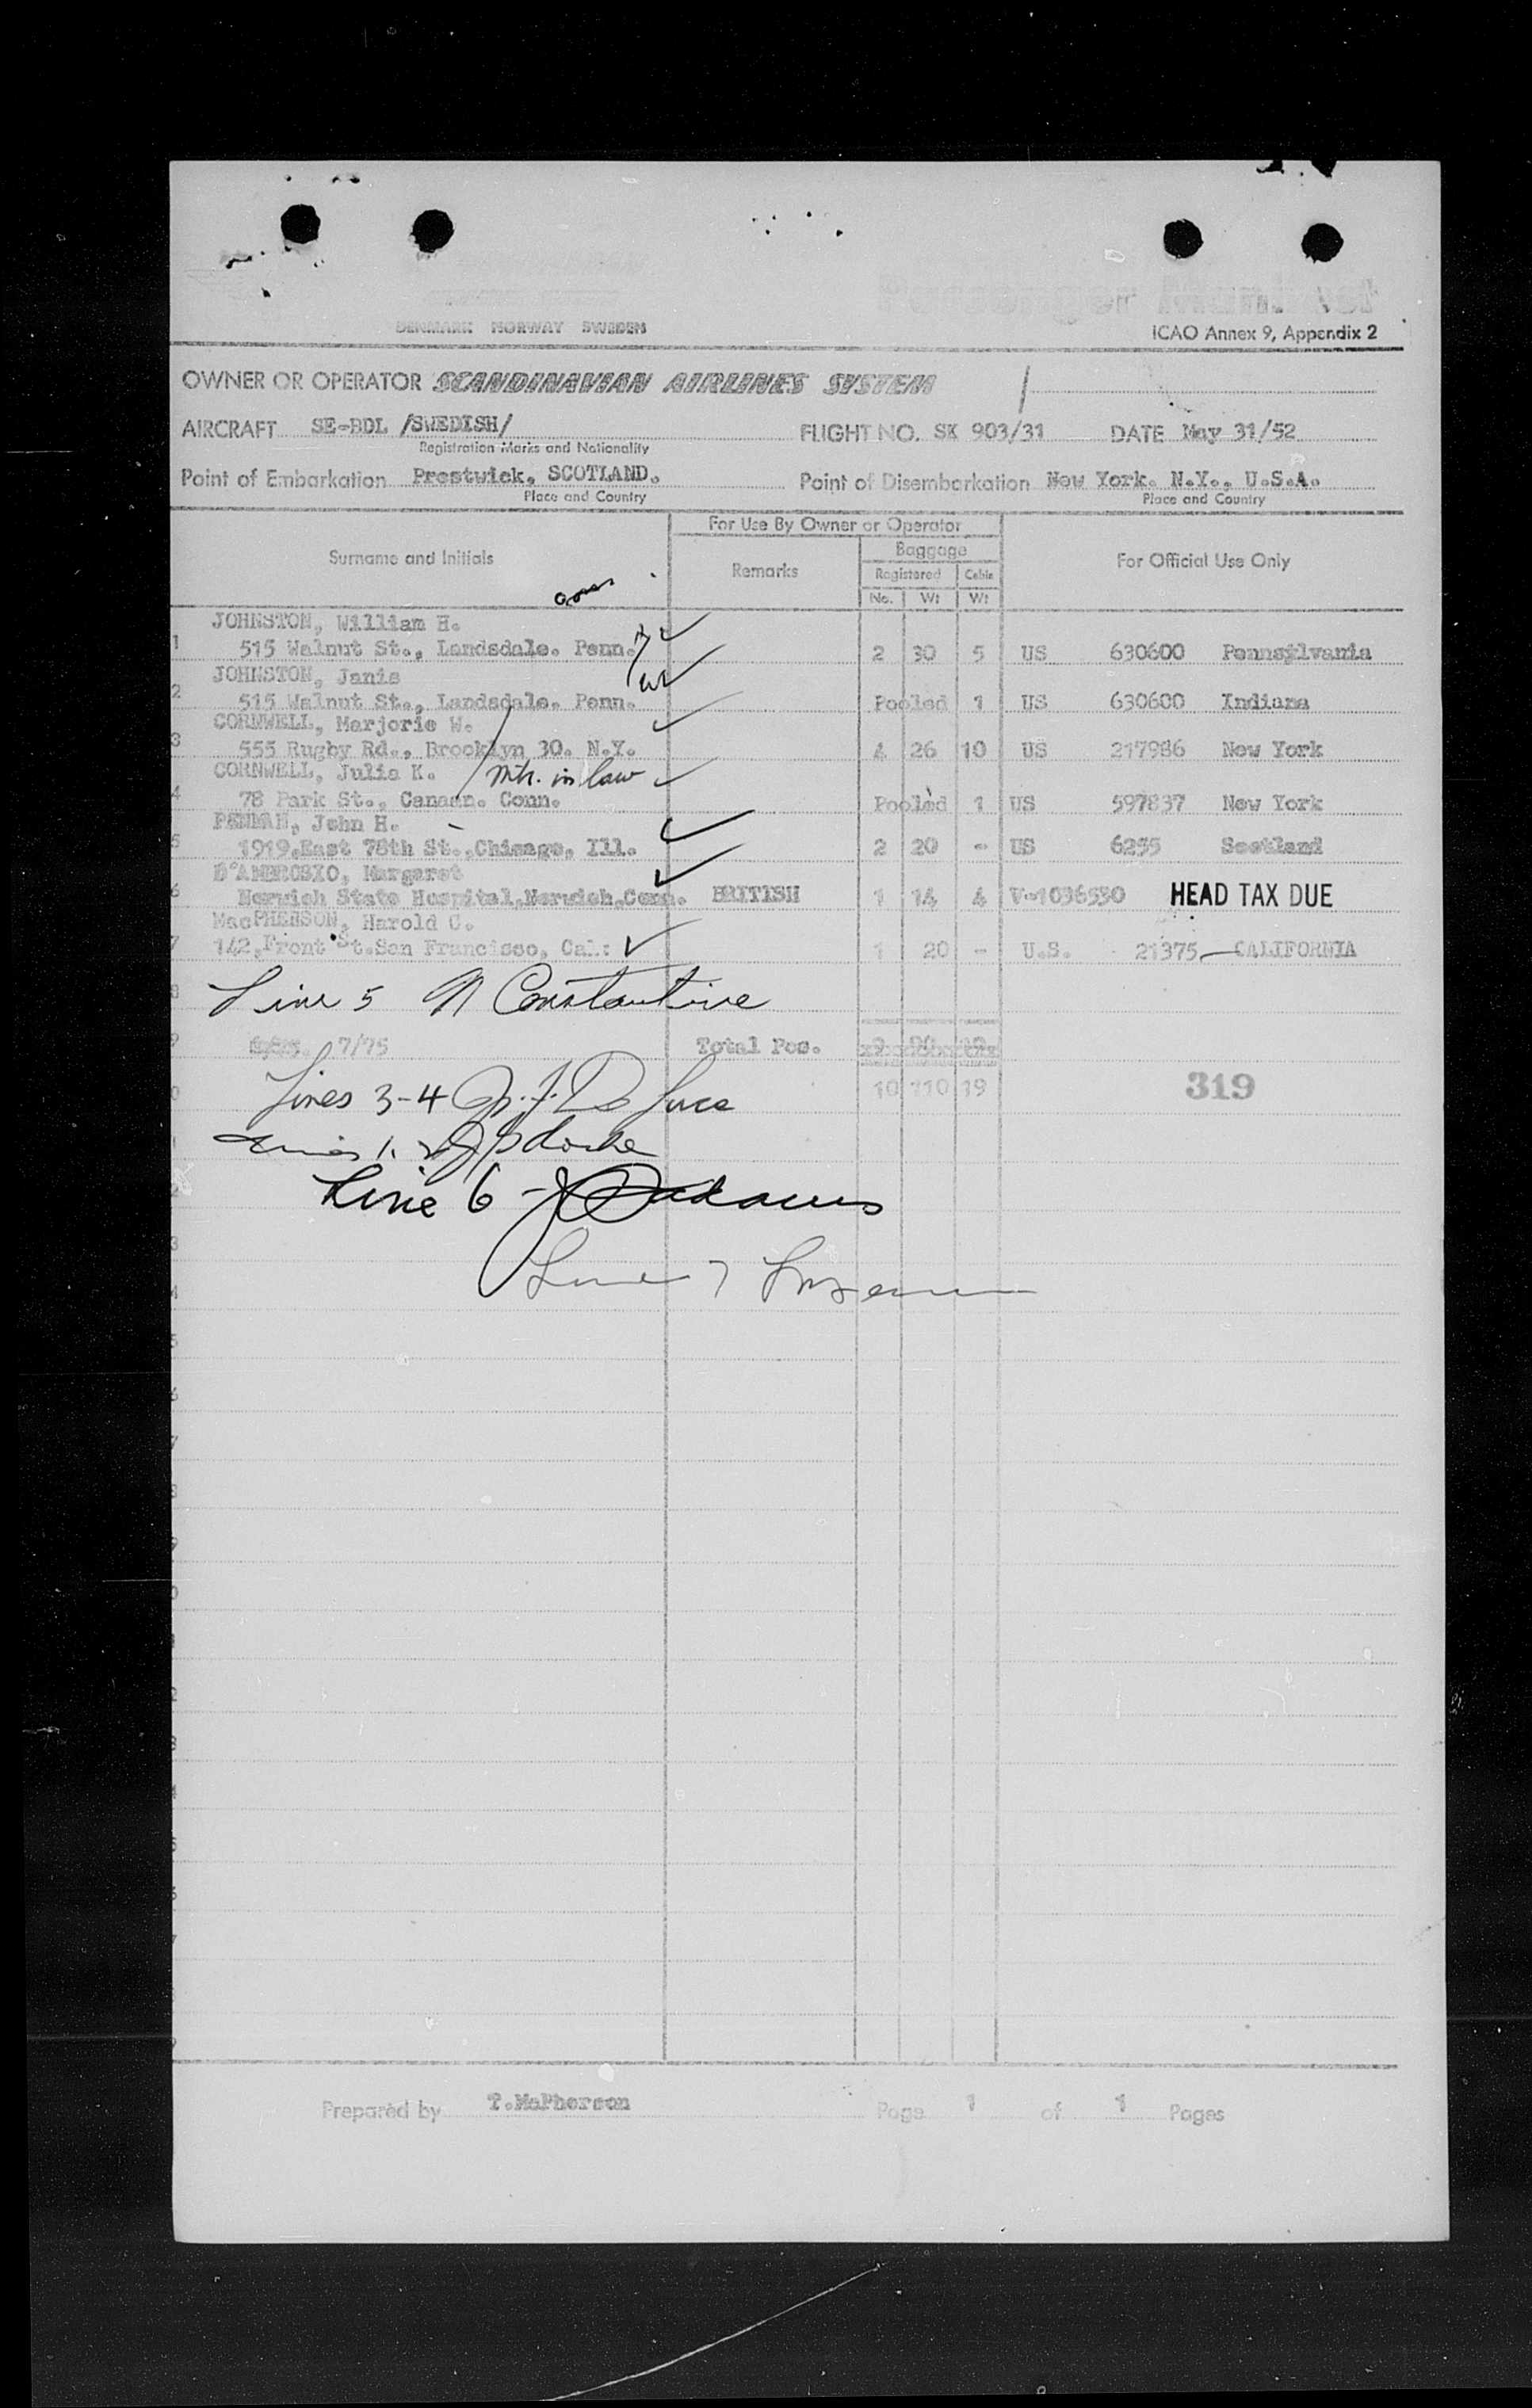 Passenger Manifest
DENMARK NORWAY SWEDEN
ICAO Annex 9, Appendix 2
OWNER OR OPERATOR SCANDINAVIAN AIRLINES SYSTEM
AIRCRAFT SE-BDL /SWEDISH/ FLIGHT NO. SK 903/31 DATE May 31/52
Registration Marks and Nationality
Point of Embarkation Prestwick, SCOTLAND. Point of Disembarkation New York. N.Y., U.S.A.
Place and Country Place and Country
For Use By Owner or Operator
Surname and Initials Remarks Baggage For Official Use Only
Registered Cabin
No. Wt Wt
JOHNSTON, William H.
1 515 Walnut St., Landsdale. Penn. 2 30 5 US 630600 Pennsylvania
JOHNSTON, Janis
2 515 Walnut St., Landsdale. Penn. Pooled 1 US 630600 Indiana
CORNWELL, Marjorie W.
3 555 Rugby Rd., Brooklyn 30. N.Y. 4 26 10 US 217986 New York
CORNWELL, Julia K. Mth. in law
4 78 Park St., Canaan. Conn. Pooled 1 US 597837 New York
PENMAN, John H.
5 1919,East 78th St.,Chicago, Ill. 2 20 - US 6255 Scotland
D'AMBROSIO, Margaret
6 Norwich State Hospital,Norwich,Conn. BRITISH 1 14 4 V-1036530 HEAD TAX DUE
MacPHERSON, Harold C.
7 142,Front St.San Francisco, Cal: 1 20 - U.S. 21375 - CALIFORNIA
Line 5 N Constantine
7/75 Total Pcs.
10 110 19
319
Lines 3-4
Lines 1.2
Line 6 -
Line 7
Prepared by T.McPherson Page 1 of 1 Pages